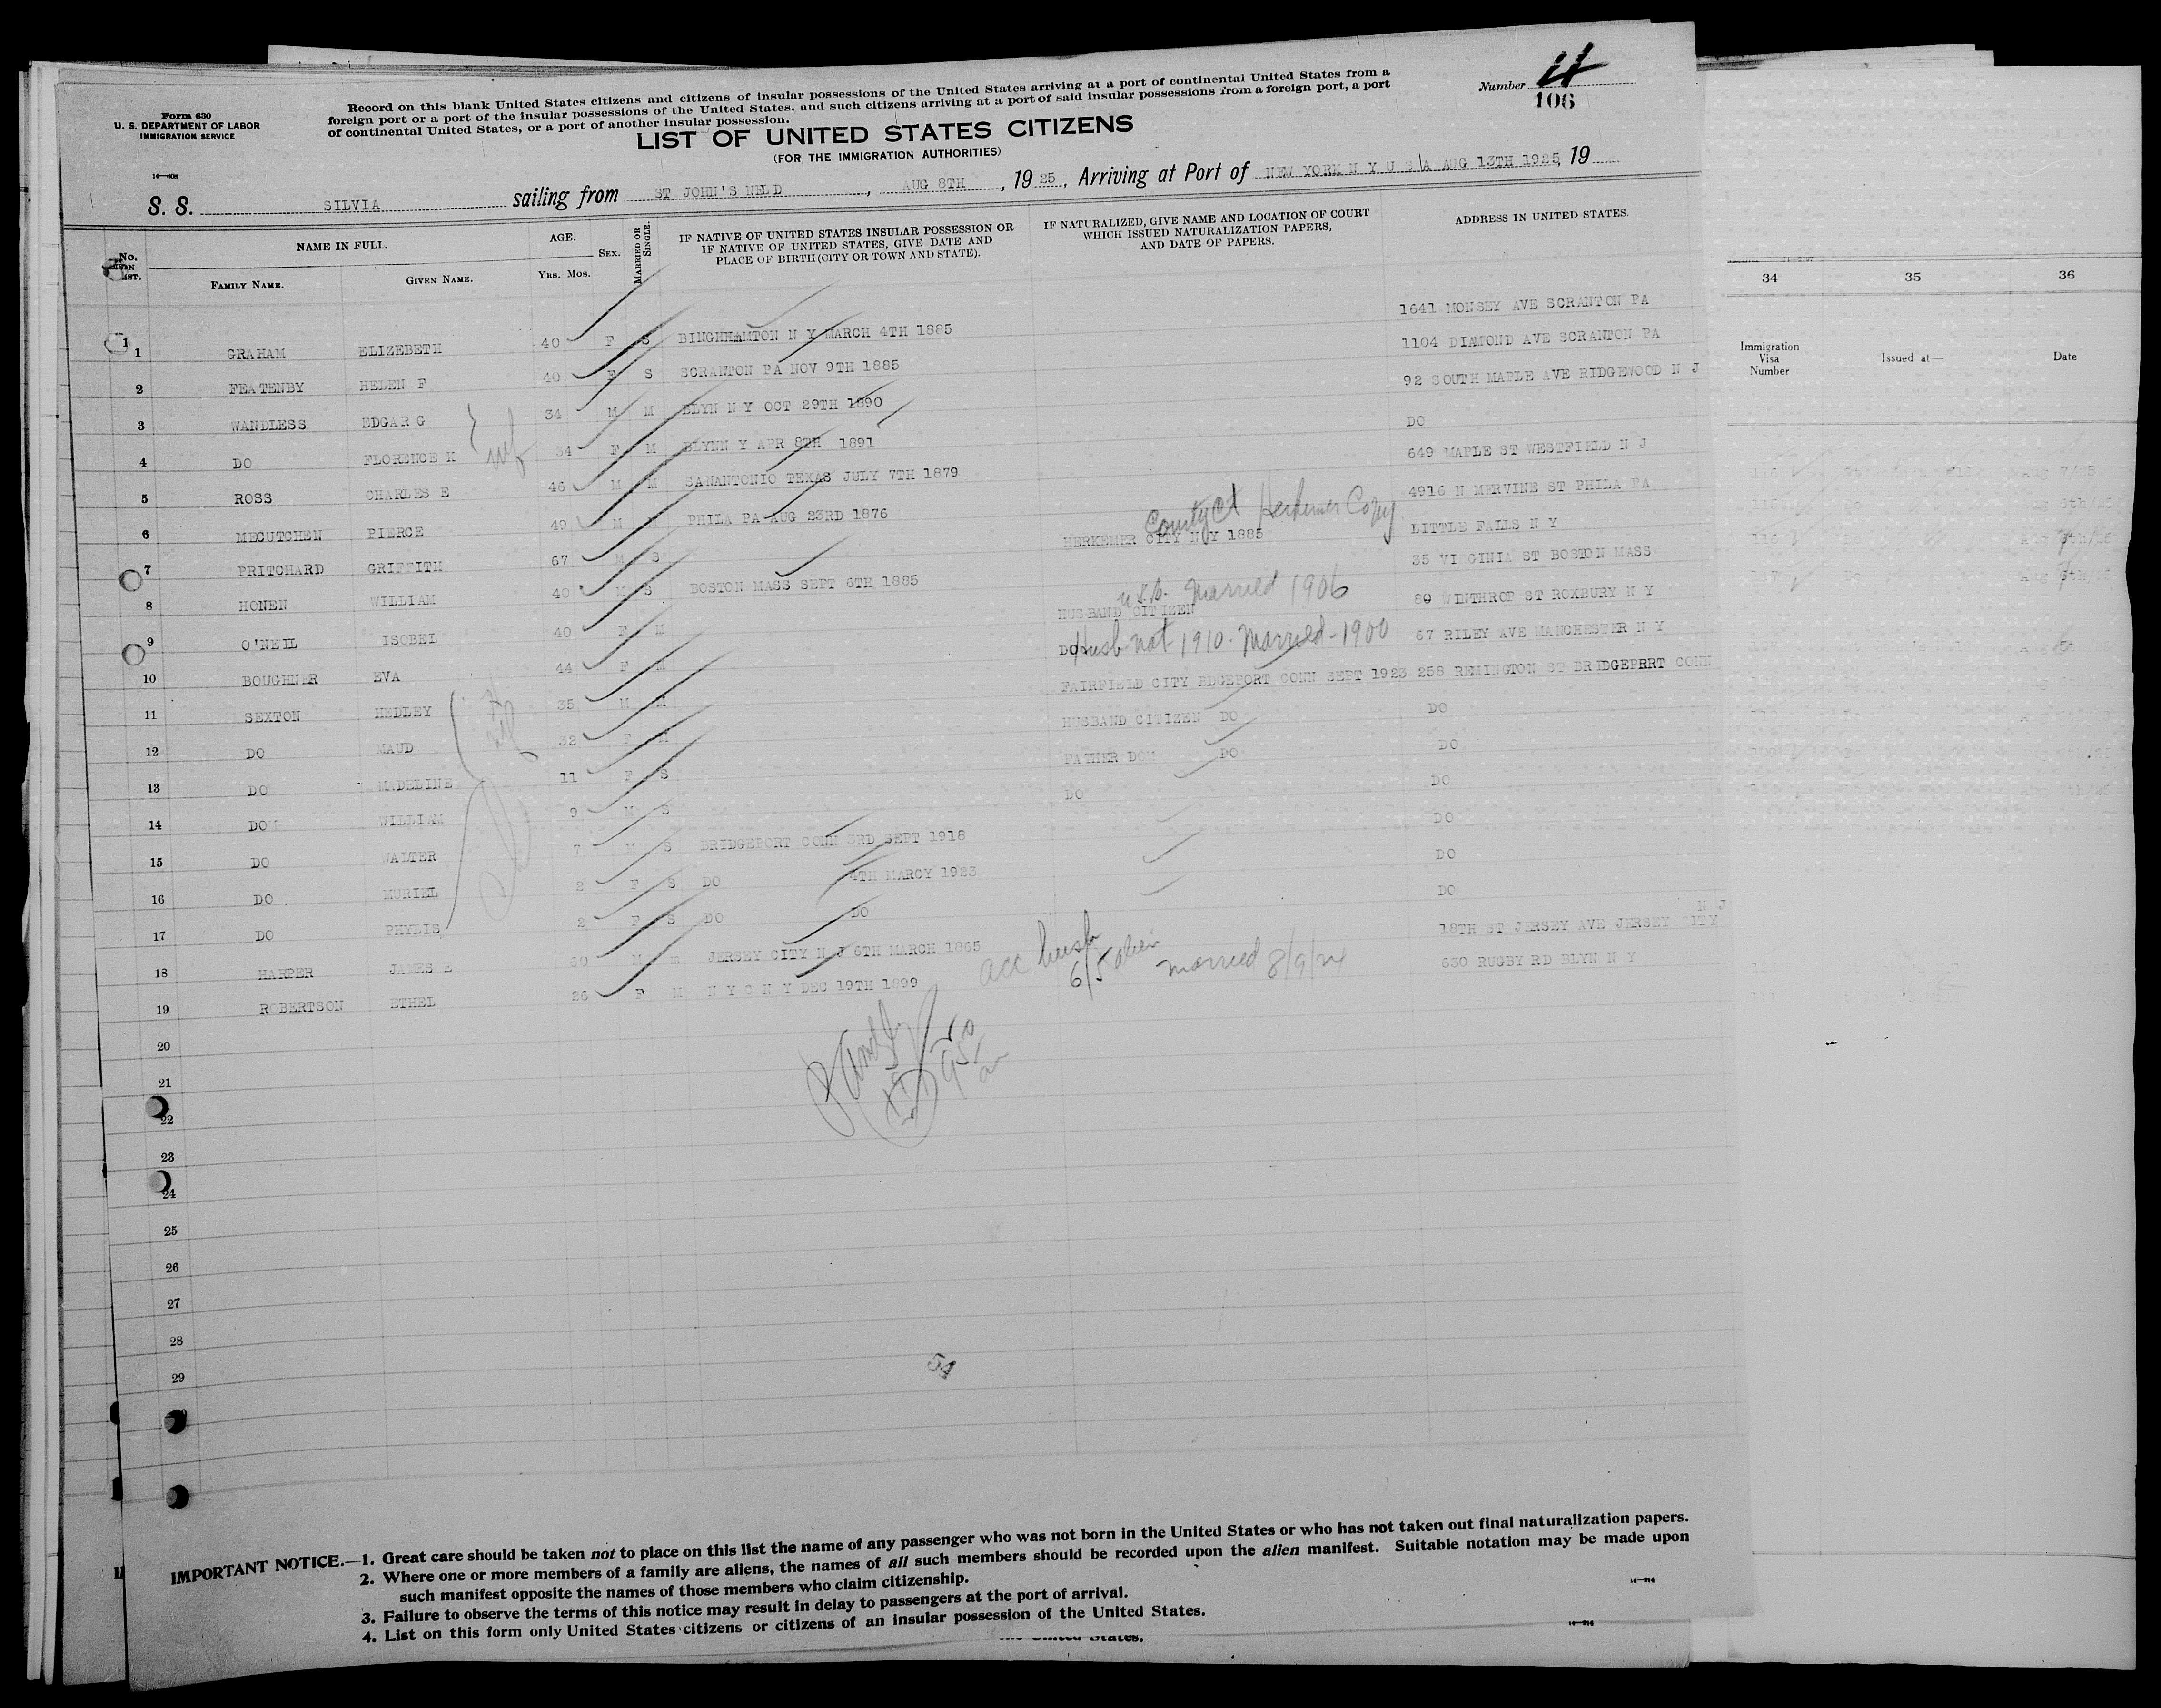 Form 630
U. S. DEPARTMENT OF LABOR
IMMIGRATION SERVICE
Record on this blank United States citizens and citizens of insular possessions of the United States arriving at a port of continental United States from a
foreign port or a port of the insular possessions of the United States, and such citizens arriving at a port of said insular possessions from a foreign port, a port
of continental United States, or a port of another insular possession.
Number
106
LIST OF UNITED STATES CITIZENS
(FOR THE IMMIGRATION AUTHORITIES)
S. S. SILVIA sailing from ST JOHN'S NFLD, AUG 8TH, 19 25, Arriving at Port of NEW YORK N Y U S A AUG 13TH 1925, 19
No. ON LIST.
NAME IN FULL.
FAMILY NAME. GIVEN NAME.
AGE.
YRS. MOS.
SEX.
MARRIED OR SINGLE.
IF NATIVE OF UNITED STATES INSULAR POSSESSION OR
IF NATIVE OF UNITED STATES, GIVE DATE AND
PLACE OF BIRTH (CITY OR TOWN AND STATE).
IF NATURALIZED, GIVE NAME AND LOCATION OF COURT
WHICH ISSUED NATURALIZATION PAPERS,
AND DATE OF PAPERS.
ADDRESS IN UNITED STATES.
1 GRAHAM ELIZEBETH 40 F S BINGHHAMTON N Y MARCH 4TH 1885 1641 MONSEY AVE SCRANTON PA
2 FEATENBY HELEN F 40 F S SCRANTON PA NOV 9TH 1885 1104 DIAMOND AVE SCRANTON PA
3 WANDLESS EDGAR G 34 M M BLYN N Y OCT 29TH 1890 92 SOUTH MAPLE AVE RIDGEWOOD N J
4 DO FLORENCE K wf 34 F M BLYNN Y APR 8TH 1891 DO
5 ROSS CHARLES E 46 M M SANANTONIO TEXAS JULY 7TH 1879 649 MAPLE ST WESTFIELD N J
6 MECUTCHEN PIERCE 49 M M PHILA PA AUG 23RD 1876 4916 N MERVINE ST PHILA PA
County Ct Herkimer Copy
7 PRITCHARD GRIFFITH 67 M S HERKEMER CITY N Y 1885 LITTLE FALLS N Y
8 HONEN WILLIAM 40 M S BOSTON MASS SEPT 6TH 1885 35 VIRGINIA ST BOSTON MASS
Married 1906
9 O'NEIL ISOBEL 40 F M HUSBAND CITIZEN 80 WINTHROP ST ROXBURY N Y
10 BOUGHNER EVA 44 F M DO Husb. Nat 1910. Married - 1900 67 RILEY AVE MANCHESTER N Y
11 SEXTON HEDLEY 35 M M FAIRFIELD CITY BDGEPORT CONN SEPT 1923 258 REMINGTON ST BRIDGEPRRT CONN
12 DO MAUD wf 32 F M HUSBAND CITIZEN DO DO
13 DO MADELINE 11 F S FATHER DOM DO DO
14 DO WILLIAM 9 M S DO DO
15 DO WALTER 7 M S BRIDGEPORT CONN 3RD SEPT 1918 DO
16 DO MURIEL 2 F S DO 4TH MARCY 1923 DO
17 DO PHYLIS 2 F S DO DO DO
18 HARPER JAMES E 60 M m JERSEY CITY N J 6TH MARCH 1865 18TH ST JERSEY AVE JERSEY CITY N J
acc husb 6/5 alien married 8/9/24
19 ROBERTSON ETHEL 26 F M N Y C N Y DEC 19TH 1899 630 RUGBY RD BLYN N Y
20
21
22
23
24
25
26
27
28
29
54
IMPORTANT NOTICE.—1. Great care should be taken not to place on this list the name of any passenger who was not born in the United States or who has not taken out final naturalization papers.
2. Where one or more members of a family are aliens, the names of all such members should be recorded upon the alien manifest. Suitable notation may be made upon
such manifest opposite the names of those members who claim citizenship.
3. Failure to observe the terms of this notice may result in delay to passengers at the port of arrival.
4. List on this form only United States citizens or citizens of an insular possession of the United States.
34 35 36
Immigration Visa Number
Issued at—
Date